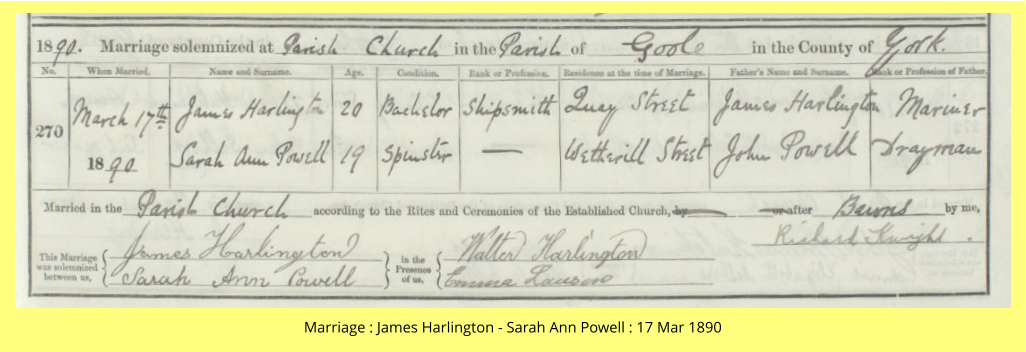 1890. Marriage solemnized at Parish Church in the Parish of Goole in the County of York.
No. When Married. Name and Surname. Age. Condition. Rank or Profession. Residence at the time of Marriage. Father's Name and Surname. Rank or Profession of Father.
270 March 17th 1890 James Harlington 20 Bachelor Shipsmith Quay Street James Harlington Mariner
Sarah Ann Powell 19 Spinster — Wetherill Street John Powell Drayman
Married in the Parish Church according to the Rites and Ceremonies of the Established Church, by or after Banns by me,
Richard Knight.
This Marriage was solemnized between us, James Harlington in the Presence of us, Walter Harlington
Sarah Ann Powell Emma Lawson
Marriage : James Harlington - Sarah Ann Powell : 17 Mar 1890